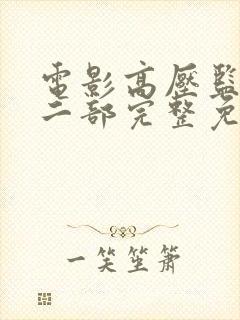 電影高壓監
二部完整免
一笑坐萧